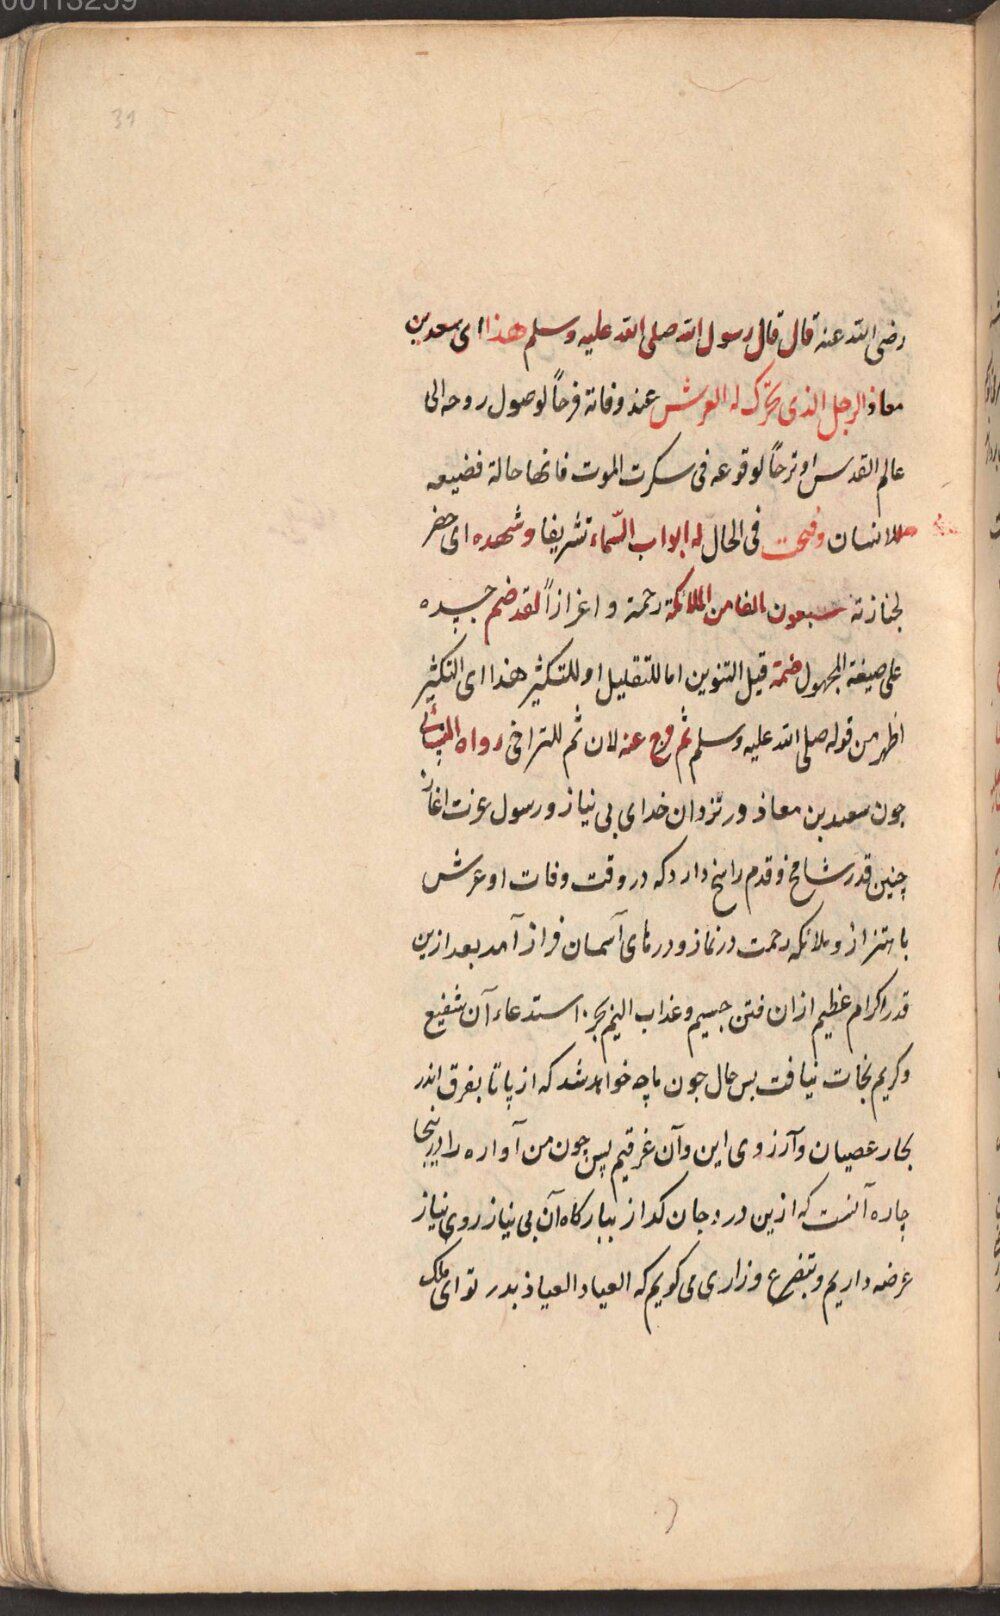 00113259
31
رضی الله عنه قال قال رسول الله صلی الله علیه وسلم هذا ای سعد بن
معاذ الرجل الذی تحرّک له العرش عند وفاته فرحاً لوصول روحه الی
عالم القدس او ترحاً لوقوعه فی سکرت الموت فانها حالة فضیعه
للانسان وفتحت فی الحال له ابواب السّماء تشریفا وشهده ای حضر
لجنازته سبعون الفا من الملائکة رحمة و اعزازاً لقد ضم جسده
علی صیغة المجهول ضمة قیل التنوین اما للتقلیل او للتکثیر هذا ای التکثیر
اظهر من قوله صلی الله علیه وسلم ثم فرج عنه لان ثم للتراخی رواه النسائی
جون سعد بن معاذ در نزدان خدای بی نیاز و رسول عزت اغاز
چنین قدر شامخ و قدم راسخ دارد که در وقت وفات او عرش
باهتزاز و ملائکه رحمت در نماز و درهای آسمان فراز آمد بعد ازین
قدر اکرام عظیم ازان فتن جسیم و عذاب الیم بجز استدعاء آن شفیع
وکریم نجات نیافت بس حال جون ما چه خواهد شد که از پا تا بفرق اندر
بحار عصیان و آرزوی این وآن غرقیم پس جون من آواره را درینجا
چاره آنست که ازین درد جان کداز ببارکاه آن بی نیاز روی نیاز
عرضه داریم و بتضرع و زاری می کویم که العیاذ العیاذ بدر تو ای ملک